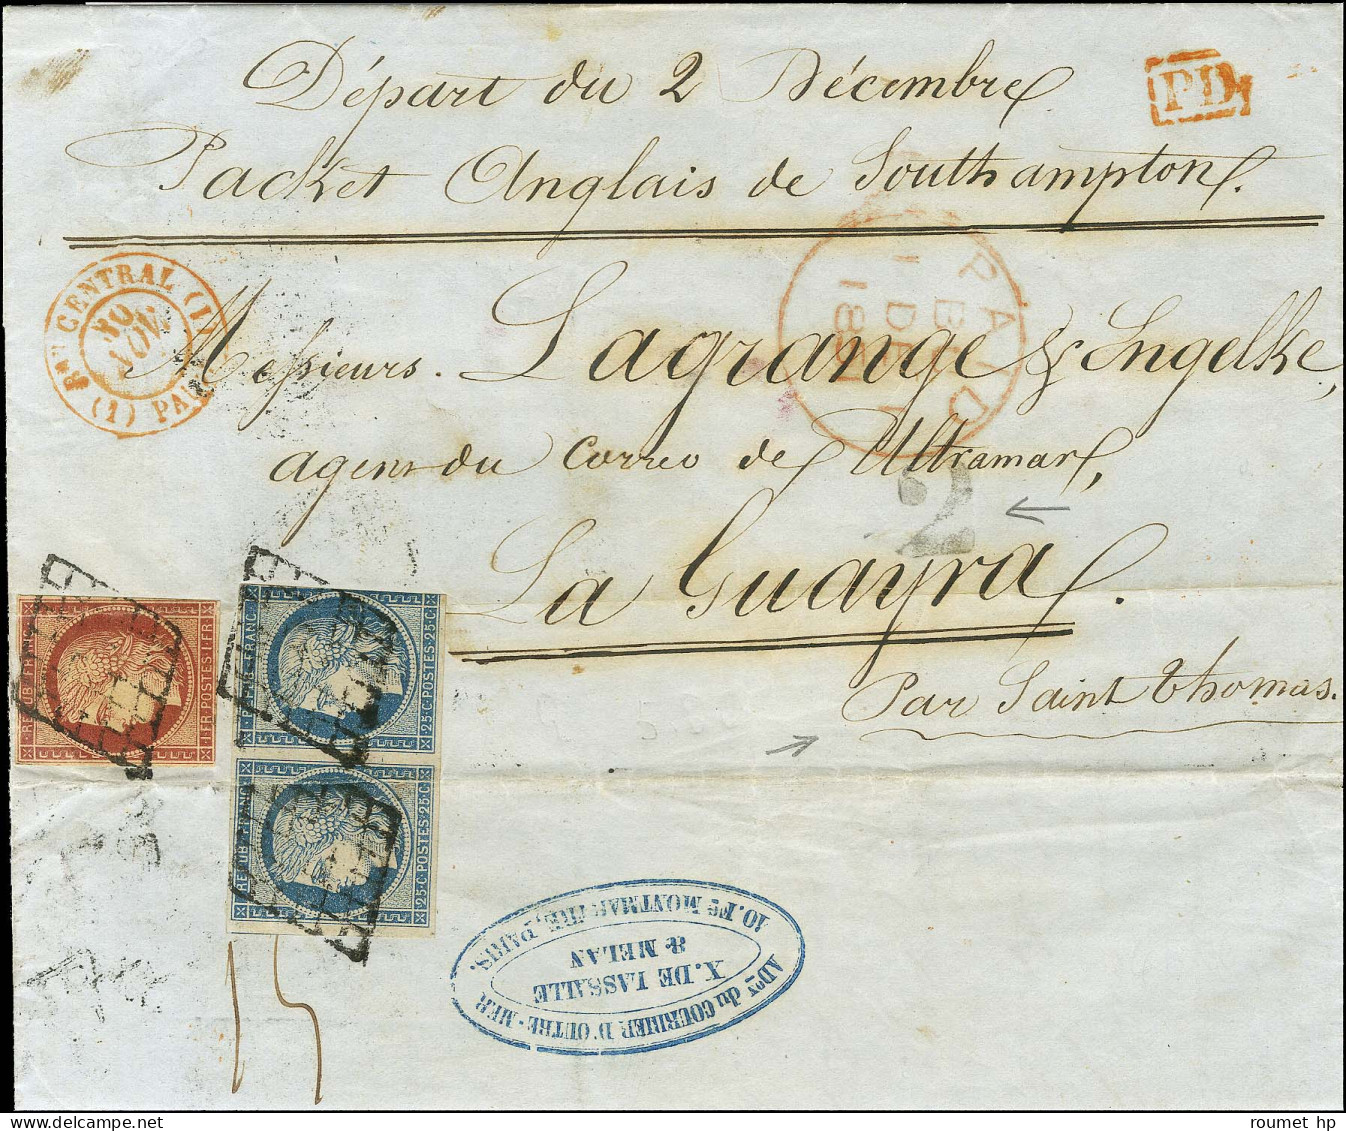 Départ du 2 Décembre
PD
Packet Anglais de Southampton.
PAID
1 DE
Bau CENTRAL (1)
30
NOV.
(1) PARIS
Messieurs. Lagrange & Engelke,
agens du Correo de Ultramar,
2
La Guayra.
Par Saint Thomas.
REPUB. FRANC.
1FR. POSTES. 1FR.
REPUB. FRANC.
25.C. POSTES. 25.C.
REPUB. FRANC.
25.C. POSTES. 25.C.
15
10. Fg MONTMARTRE, PARIS.
X. DE LASSALLE
& MELAN
ADon du COURRIER D'OUTRE-MER
roumet hp